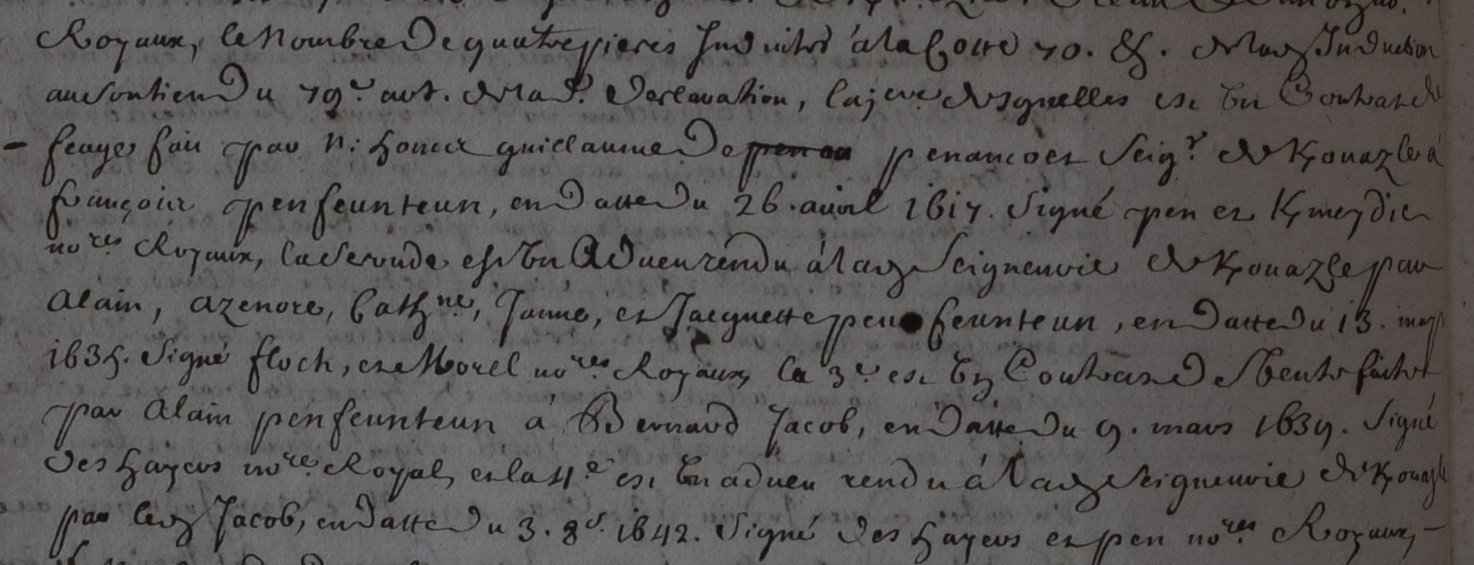 Royaux, le Nombre De quatre pieces Induites à la Cotte 70. &. de lad. Induction
au soutien Du 79.e art. de lad. Declaration, la j.ere desquelles est un Contract de
feages fait par n: homme guillaume De penancoet Seig.r de Kouazle à
françois penfeunteun, en Datte Du 26. avril 1617. Signé pen et Kmerdic
no.res Royaux, la Seconde est un Adveu rendu à lad. Seigneurie de Kouazle par
Alain, Azenore, Cath.ne, Janne, et Jacquette penfeunteun, en Datte Du 13. may
1635. Signé floch, et Morel no.res Royaux, la 3.e est un Contract De Vente faitte
par Alain penfeunteun à Bernard Jacob, en Datte Du 9. mars 1639. Signé
Des hayeus no.re Royal, et la 4.e est un adveu rendu à lad. Seigneurie de Kouazle
par led. Jacob, en Datte Du 3. 8.e 1642. Signé Des hayeus et pen no.res Royaux,